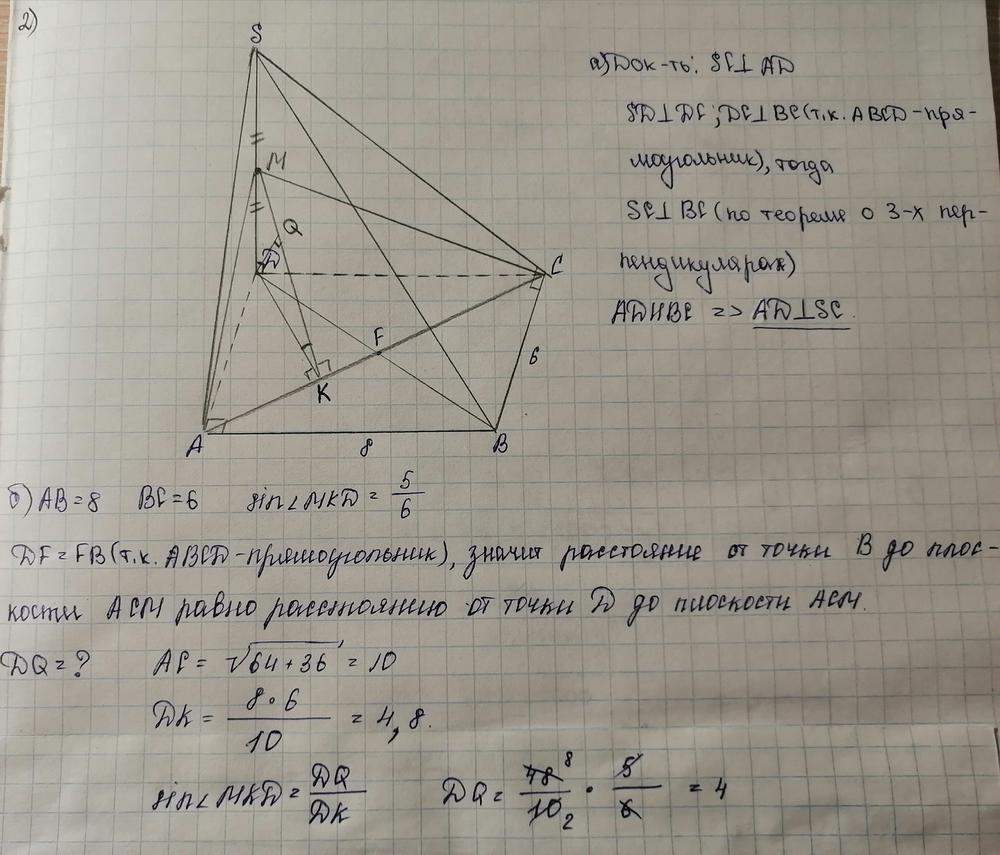 2)
S
M
Q
D
C
F
K
A
B
6
8
а) Док-ть: SC⊥AD
SD⊥DC; DC⊥BC (т.к. ABCD-пря-
моугольник), тогда
SC⊥BC (по теореме о 3-х пер-
пендикулярах)
AD||BC => AD⊥SC.
б) AB=8 BC=6 sin∠MKD = 5/6
DF=FB (т.к. ABCD-прямоугольник), значит расстояние от точки B до плос-
кости ACM равно расстоянию от точки D до плоскости ACM.
DQ=? AC= √64+36 = 10
DK = 8·6/10 = 4,8.
sin∠MKD = DQ/DK DQ = 48 8/10 2 · 5/6 = 4